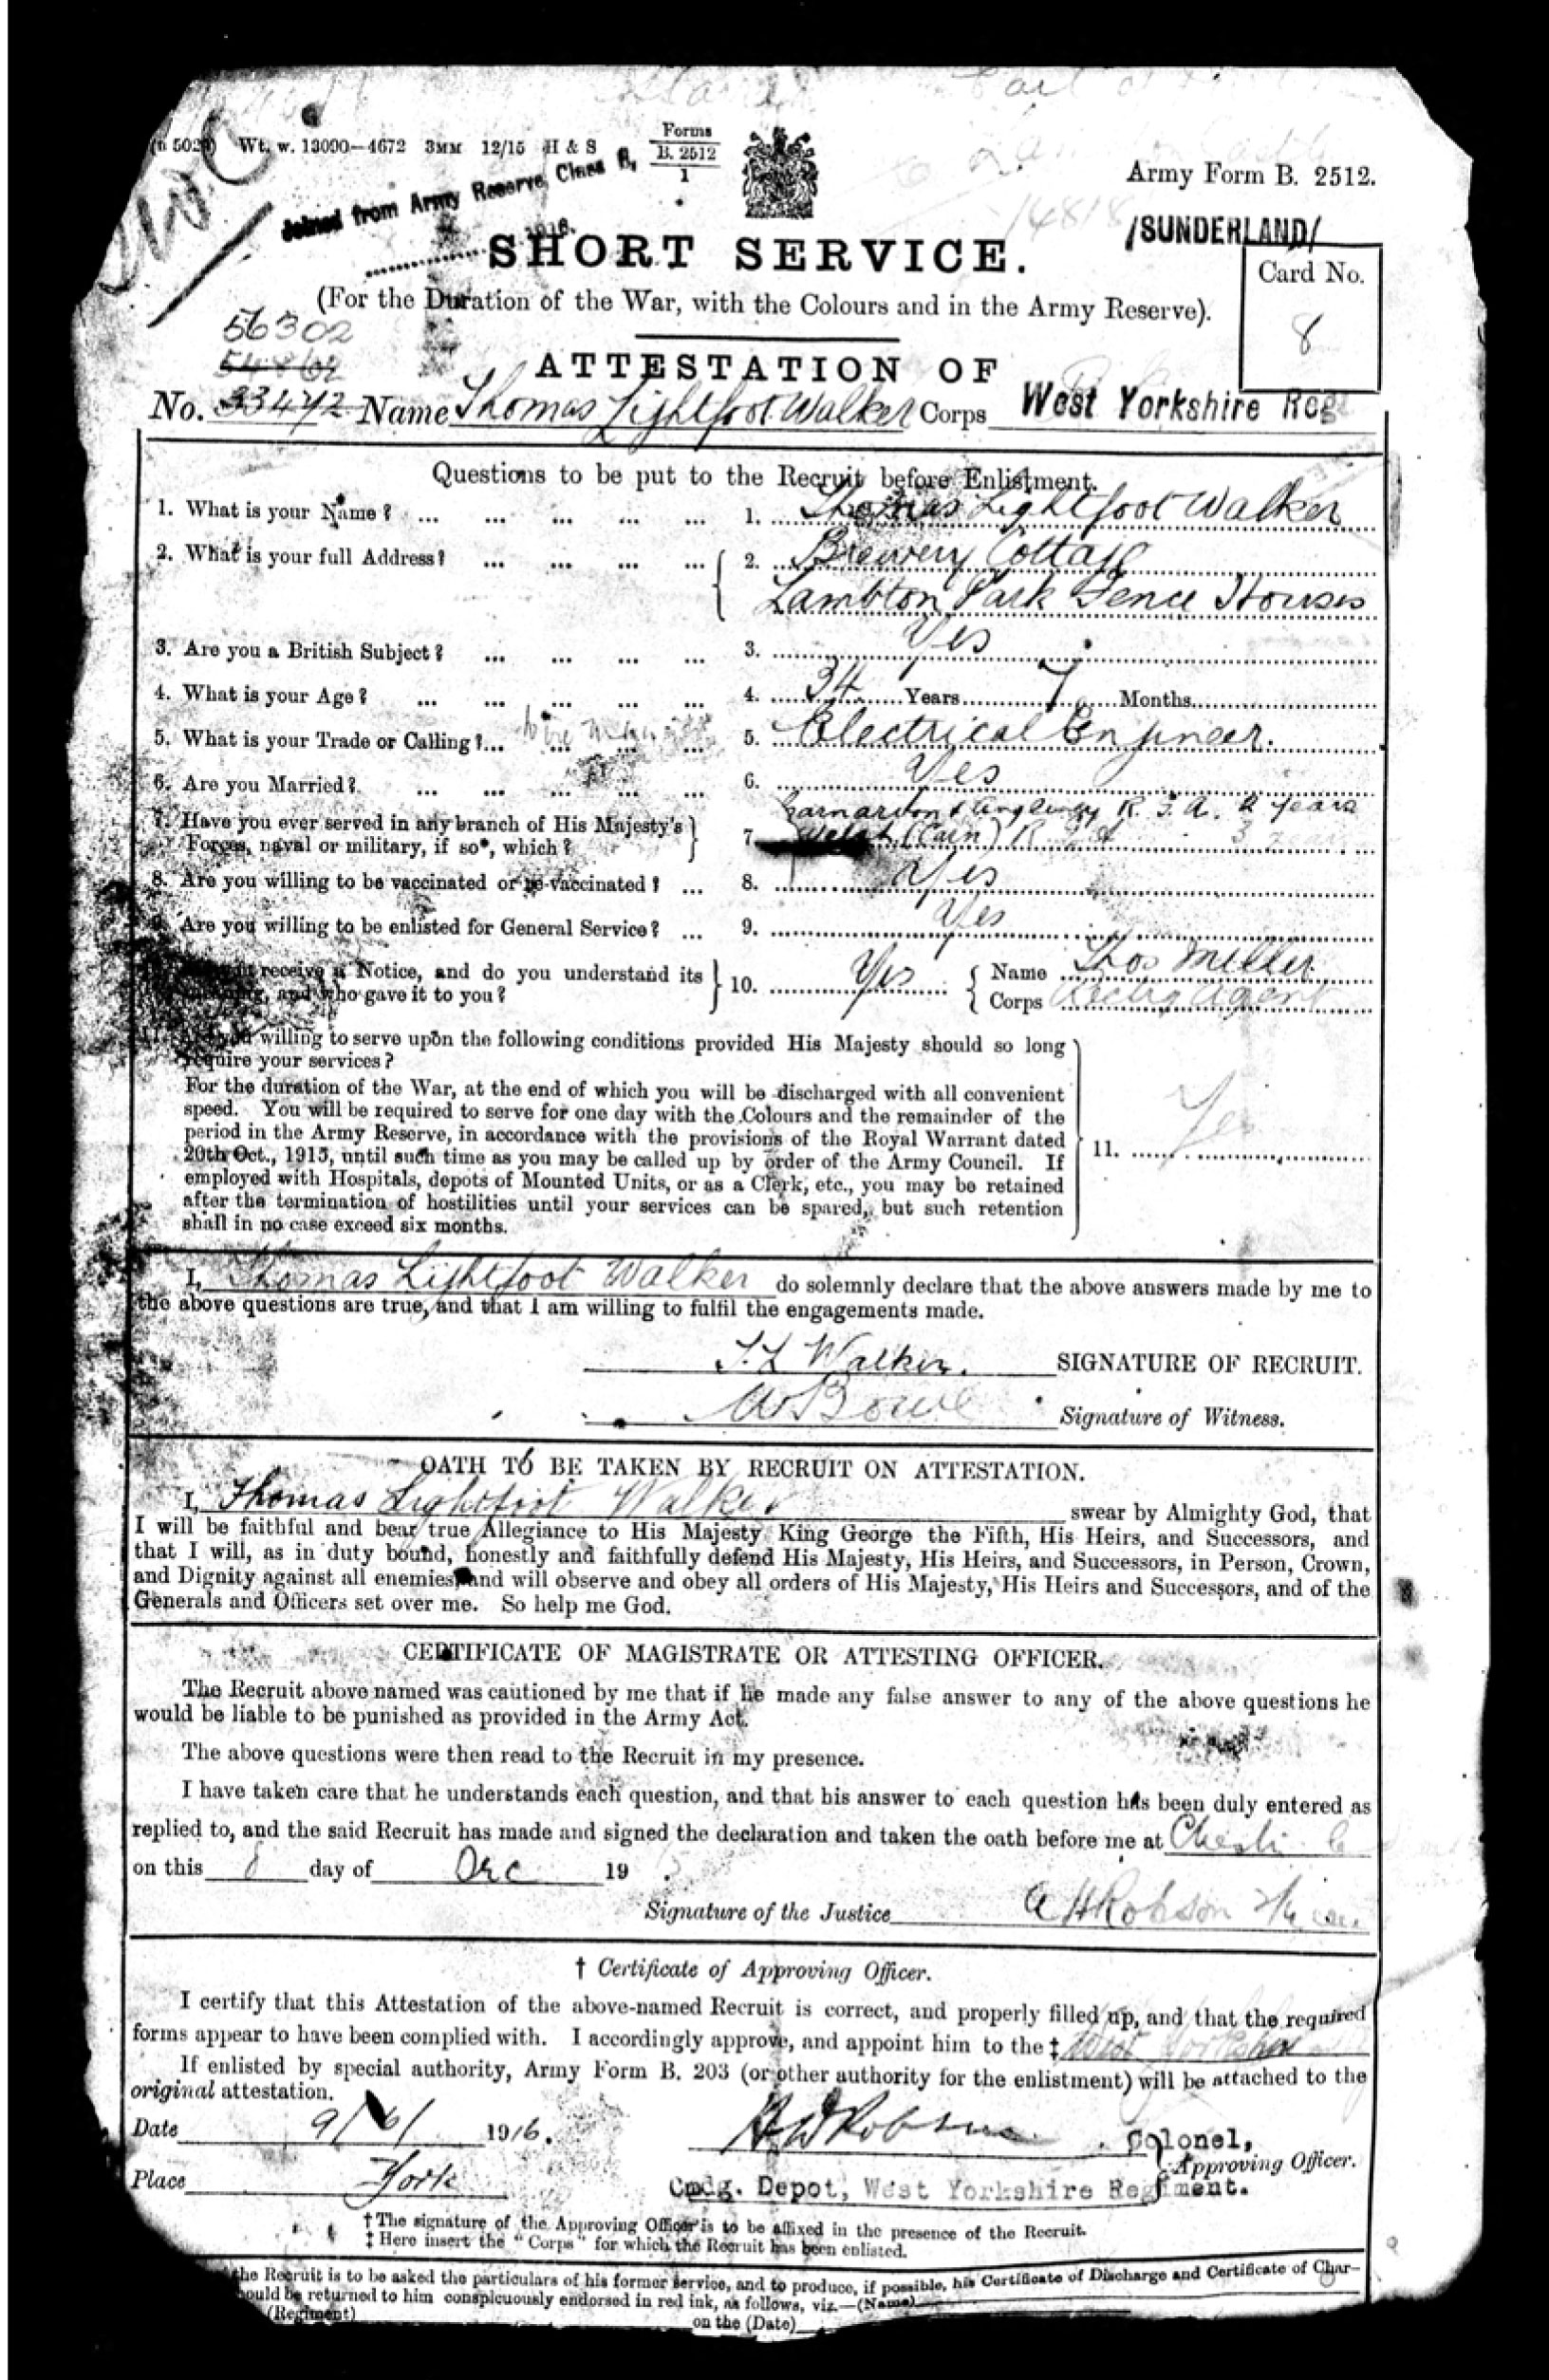 Wt. w. 13000—4672 3MM 12/15 H & S
Forms
B. 2512
1
Army Form B. 2512.
Joined from Army Reserve Class B,
1916.
/SUNDERLAND/
SHORT SERVICE.
Card No.
8
(For the Duration of the War, with the Colours and in the Army Reserve).
56302
ATTESTATION OF
No. 33472 Name Thomas Lightfoot Walker Corps West Yorkshire Reg
Questions to be put to the Recruit before Enlistment.
1. What is your Name? ... ... ... ... ... 1. Thomas Lightfoot Walker
2. What is your full Address? ... ... ... ... 2. Brewery Cottage
Lambton Park Fence Houses
3. Are you a British Subject? ... ... ... ... 3. Yes
4. What is your Age? ... ... ... ... ... 4. 34 Years 7 Months
5. What is your Trade or Calling? ... ... ... ... 5. Electrical Engineer.
6. Are you Married? ... ... ... ... ... 6. Yes
Carnarvon & Anglesey R. G. A. 2 years
7. Have you ever served in any branch of His Majesty's
Forces, naval or military, if so*, which? 7. Welsh (Carn) R G A 3 years
8. Are you willing to be vaccinated or re-vaccinated? ... 8. Yes
9. Are you willing to be enlisted for General Service? ... 9. Yes
receive a Notice, and do you understand its
, and who gave it to you? 10. Yes Name Thos Miller
Corps Rectg Agent
you willing to serve upon the following conditions provided His Majesty should so long
require your services?
For the duration of the War, at the end of which you will be discharged with all convenient
speed. You will be required to serve for one day with the Colours and the remainder of the
period in the Army Reserve, in accordance with the provisions of the Royal Warrant dated
20th Oct., 1915, until such time as you may be called up by order of the Army Council. If
employed with Hospitals, depots of Mounted Units, or as a Clerk, etc., you may be retained
after the termination of hostilities until your services can be spared, but such retention
shall in no case exceed six months.
11. Yes
I, Thomas Lightfoot Walker do solemnly declare that the above answers made by me to
the above questions are true, and that I am willing to fulfil the engagements made.
T. L Walker. SIGNATURE OF RECRUIT.
W Bowe Signature of Witness.
OATH TO BE TAKEN BY RECRUIT ON ATTESTATION.
I, Thomas Lightfoot Walker swear by Almighty God, that
I will be faithful and bear true Allegiance to His Majesty King George the Fifth, His Heirs, and Successors, and
that I will, as in duty bound, honestly and faithfully defend His Majesty, His Heirs, and Successors, in Person, Crown,
and Dignity against all enemies, and will observe and obey all orders of His Majesty, His Heirs and Successors, and of the
Generals and Officers set over me. So help me God.
CERTIFICATE OF MAGISTRATE OR ATTESTING OFFICER.
The Recruit above named was cautioned by me that if he made any false answer to any of the above questions he
would be liable to be punished as provided in the Army Act.
The above questions were then read to the Recruit in my presence.
I have taken care that he understands each question, and that his answer to each question has been duly entered as
replied to, and the said Recruit has made and signed the declaration and taken the oath before me at
on this 8 day of Dec 19
Signature of the Justice A H Robson
† Certificate of Approving Officer.
I certify that this Attestation of the above-named Recruit is correct, and properly filled up, and that the required
forms appear to have been complied with. I accordingly approve, and appoint him to the ‡ West Yorkshire
If enlisted by special authority, Army Form B. 203 (or other authority for the enlistment) will be attached to the
original attestation.
Date 9/6/ 1916.
Colonel,
Approving Officer.
Place York
Cmdg. Depot, West Yorkshire Regiment.
† The signature of the Approving Officer is to be affixed in the presence of the Recruit.
‡ Here insert the "Corps" for which the Recruit has been enlisted.
the Recruit is to be asked the particulars of his former service, and to produce, if possible, his Certificate of Discharge and Certificate of Char-
ould be returned to him conspicuously endorsed in red ink, as follows, viz.—(Name)
(Regiment) on the (Date)